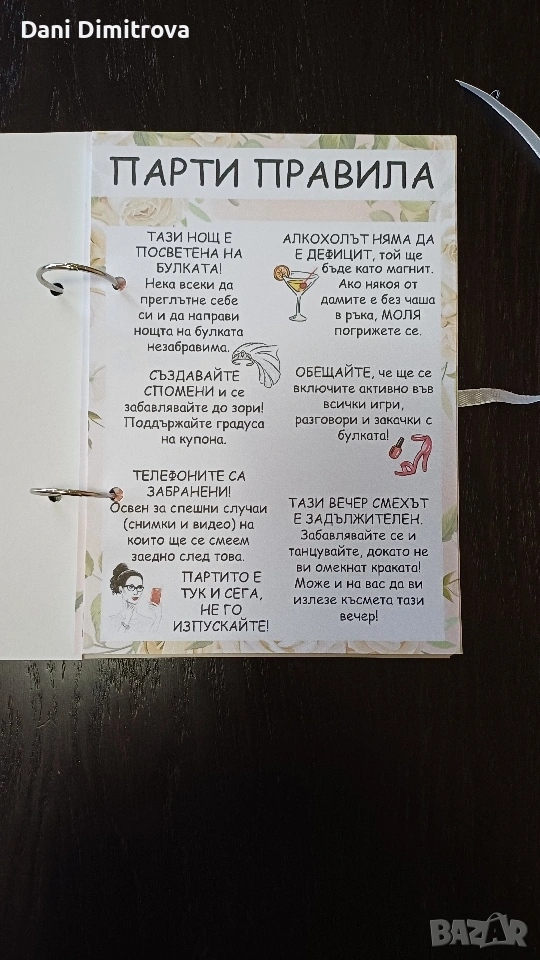 Dani Dimitrova
ПАРТИ ПРАВИЛА
ТАЗИ НОЩ Е
ПОСВЕТЕНА НА
БУЛКАТА!
Нека всеки да
преглътне себе
си и да направи
нощта на булката
незабравима.
СЪЗДАВАЙТЕ
СПОМЕНИ и се
забавлявайте до зори!
Поддържайте градуса
на купона.
ТЕЛЕФОНИТЕ СА
ЗАБРАНЕНИ!
Освен за спешни случаи
(снимки и видео) на
които ще се смеем
заедно след това.
ПАРТИТО Е
ТУК И СЕГА,
НЕ ГО
ИЗПУСКАЙТЕ!
АЛКОХОЛЪТ НЯМА ДА
Е ДЕФИЦИТ, той ще
бъде като магнит.
Ако някоя от
дамите е без чаша
в ръка, МОЛЯ
погрижете се.
ОБЕЩАЙТЕ, че ще се
включите активно във
всички игри,
разговори и закачки с
булката!
ТАЗИ ВЕЧЕР СМЕХЪТ
Е ЗАДЪЛЖИТЕЛЕН.
Забавлявайте се и
танцувайте, докато не
ви омекнат краката!
Може и на вас да ви
излезе късмета тази
вечер!
BAZAR